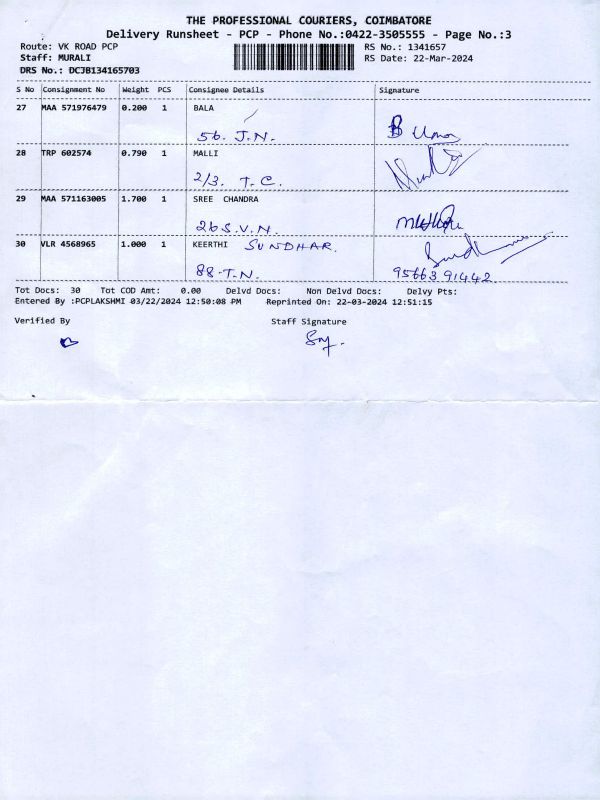 THE PROFESSIONAL COURIERS, COIMBATORE
Delivery Runsheet - PCP - Phone No.:0422-3505555 - Page No.:3
Route: VK ROAD PCP RS No.: 1341657
Staff: MURALI RS Date: 22-Mar-2024
DRS No.: DCJB134165703
S No Consignment No Weight PCS Consignee Details Signature
27 MAA 571976479 0.200 1 BALA
56. J.N.
28 TRP 602574 0.790 1 MALLI
2/3. T.C.
29 MAA 571163005 1.700 1 SREE CHANDRA
26 S.V.N.
30 VLR 4568965 1.000 1 KEERTHI SUNDHAR.
88-T.N. 9566391442
Tot Docs: 30 Tot COD Amt: 0.00 Delvd Docs: Non Delvd Docs: Delvy Pts:
Entered By :PCPLAKSHMI 03/22/2024 12:50:08 PM Reprinted On: 22-03-2024 12:51:15
Verified By Staff Signature